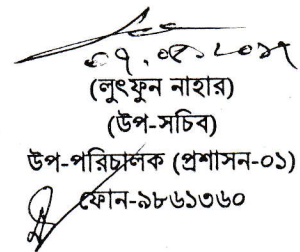 (লুৎফুন নাহার)
(উপ-সচিব)
উপ-পরিচালক (প্রশাসন-০১)
ফোন-৯৮৬১৩৬০